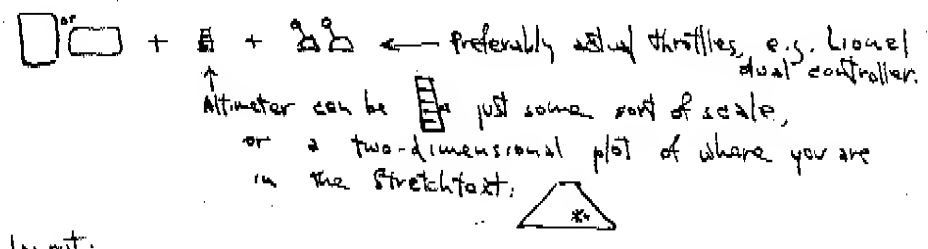 or + + ← Preferably actual throttles, e.g. Lionel
dual controller.
Altimeter can be just some sort of scale,
or a two-dimensional plot of where you are
in the Stretchtext.